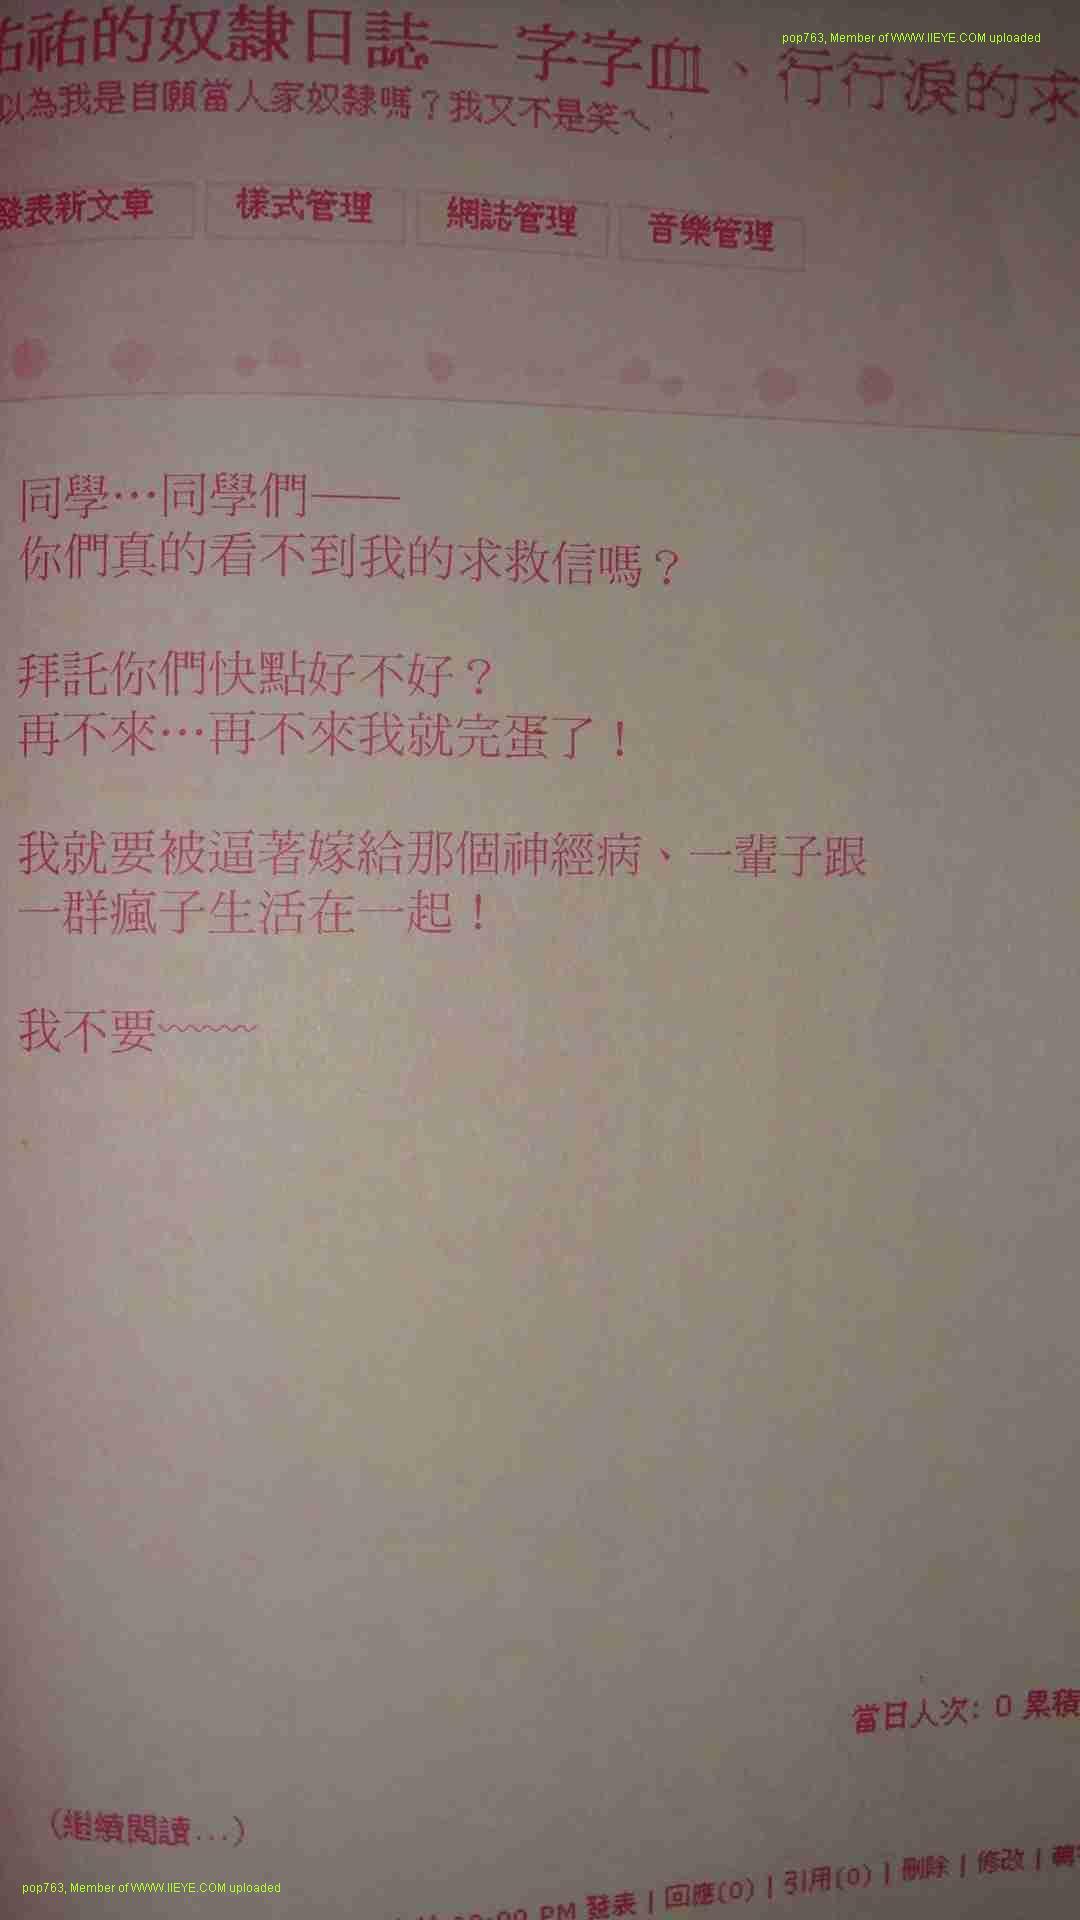 pop763, Member of WWW.IIEYE.COM uploaded
祐的奴隸日誌—字字血、行行淚的求
以為我是自願當人家奴隸嗎？我又不是笑ㄟ！
發表新文章 樣式管理 網誌管理 音樂管理
同學…同學們——
你們真的看不到我的求救信嗎？
拜託你們快點好不好？
再不來…再不來我就完蛋了！
我就要被逼著嫁給那個神經病、一輩子跟
一群瘋子生活在一起！
我不要~~~~
當日人次: 0 累積
(繼續閱讀...)
PM 發表 | 回應(0) | 引用(0) | 刪除 | 修改 |
pop763, Member of WWW.IIEYE.COM uploaded